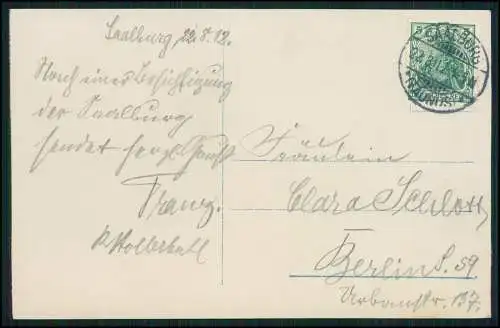 Saalburg 22.8.12.
Nach einer Besichtigung
der Saalburg
sendet herzl. Gruß
Franz.
Fräulein
Clara Schlott
Berlin S. 59
Urbanstr. 137.
SAALBURG
(TAUNUS)